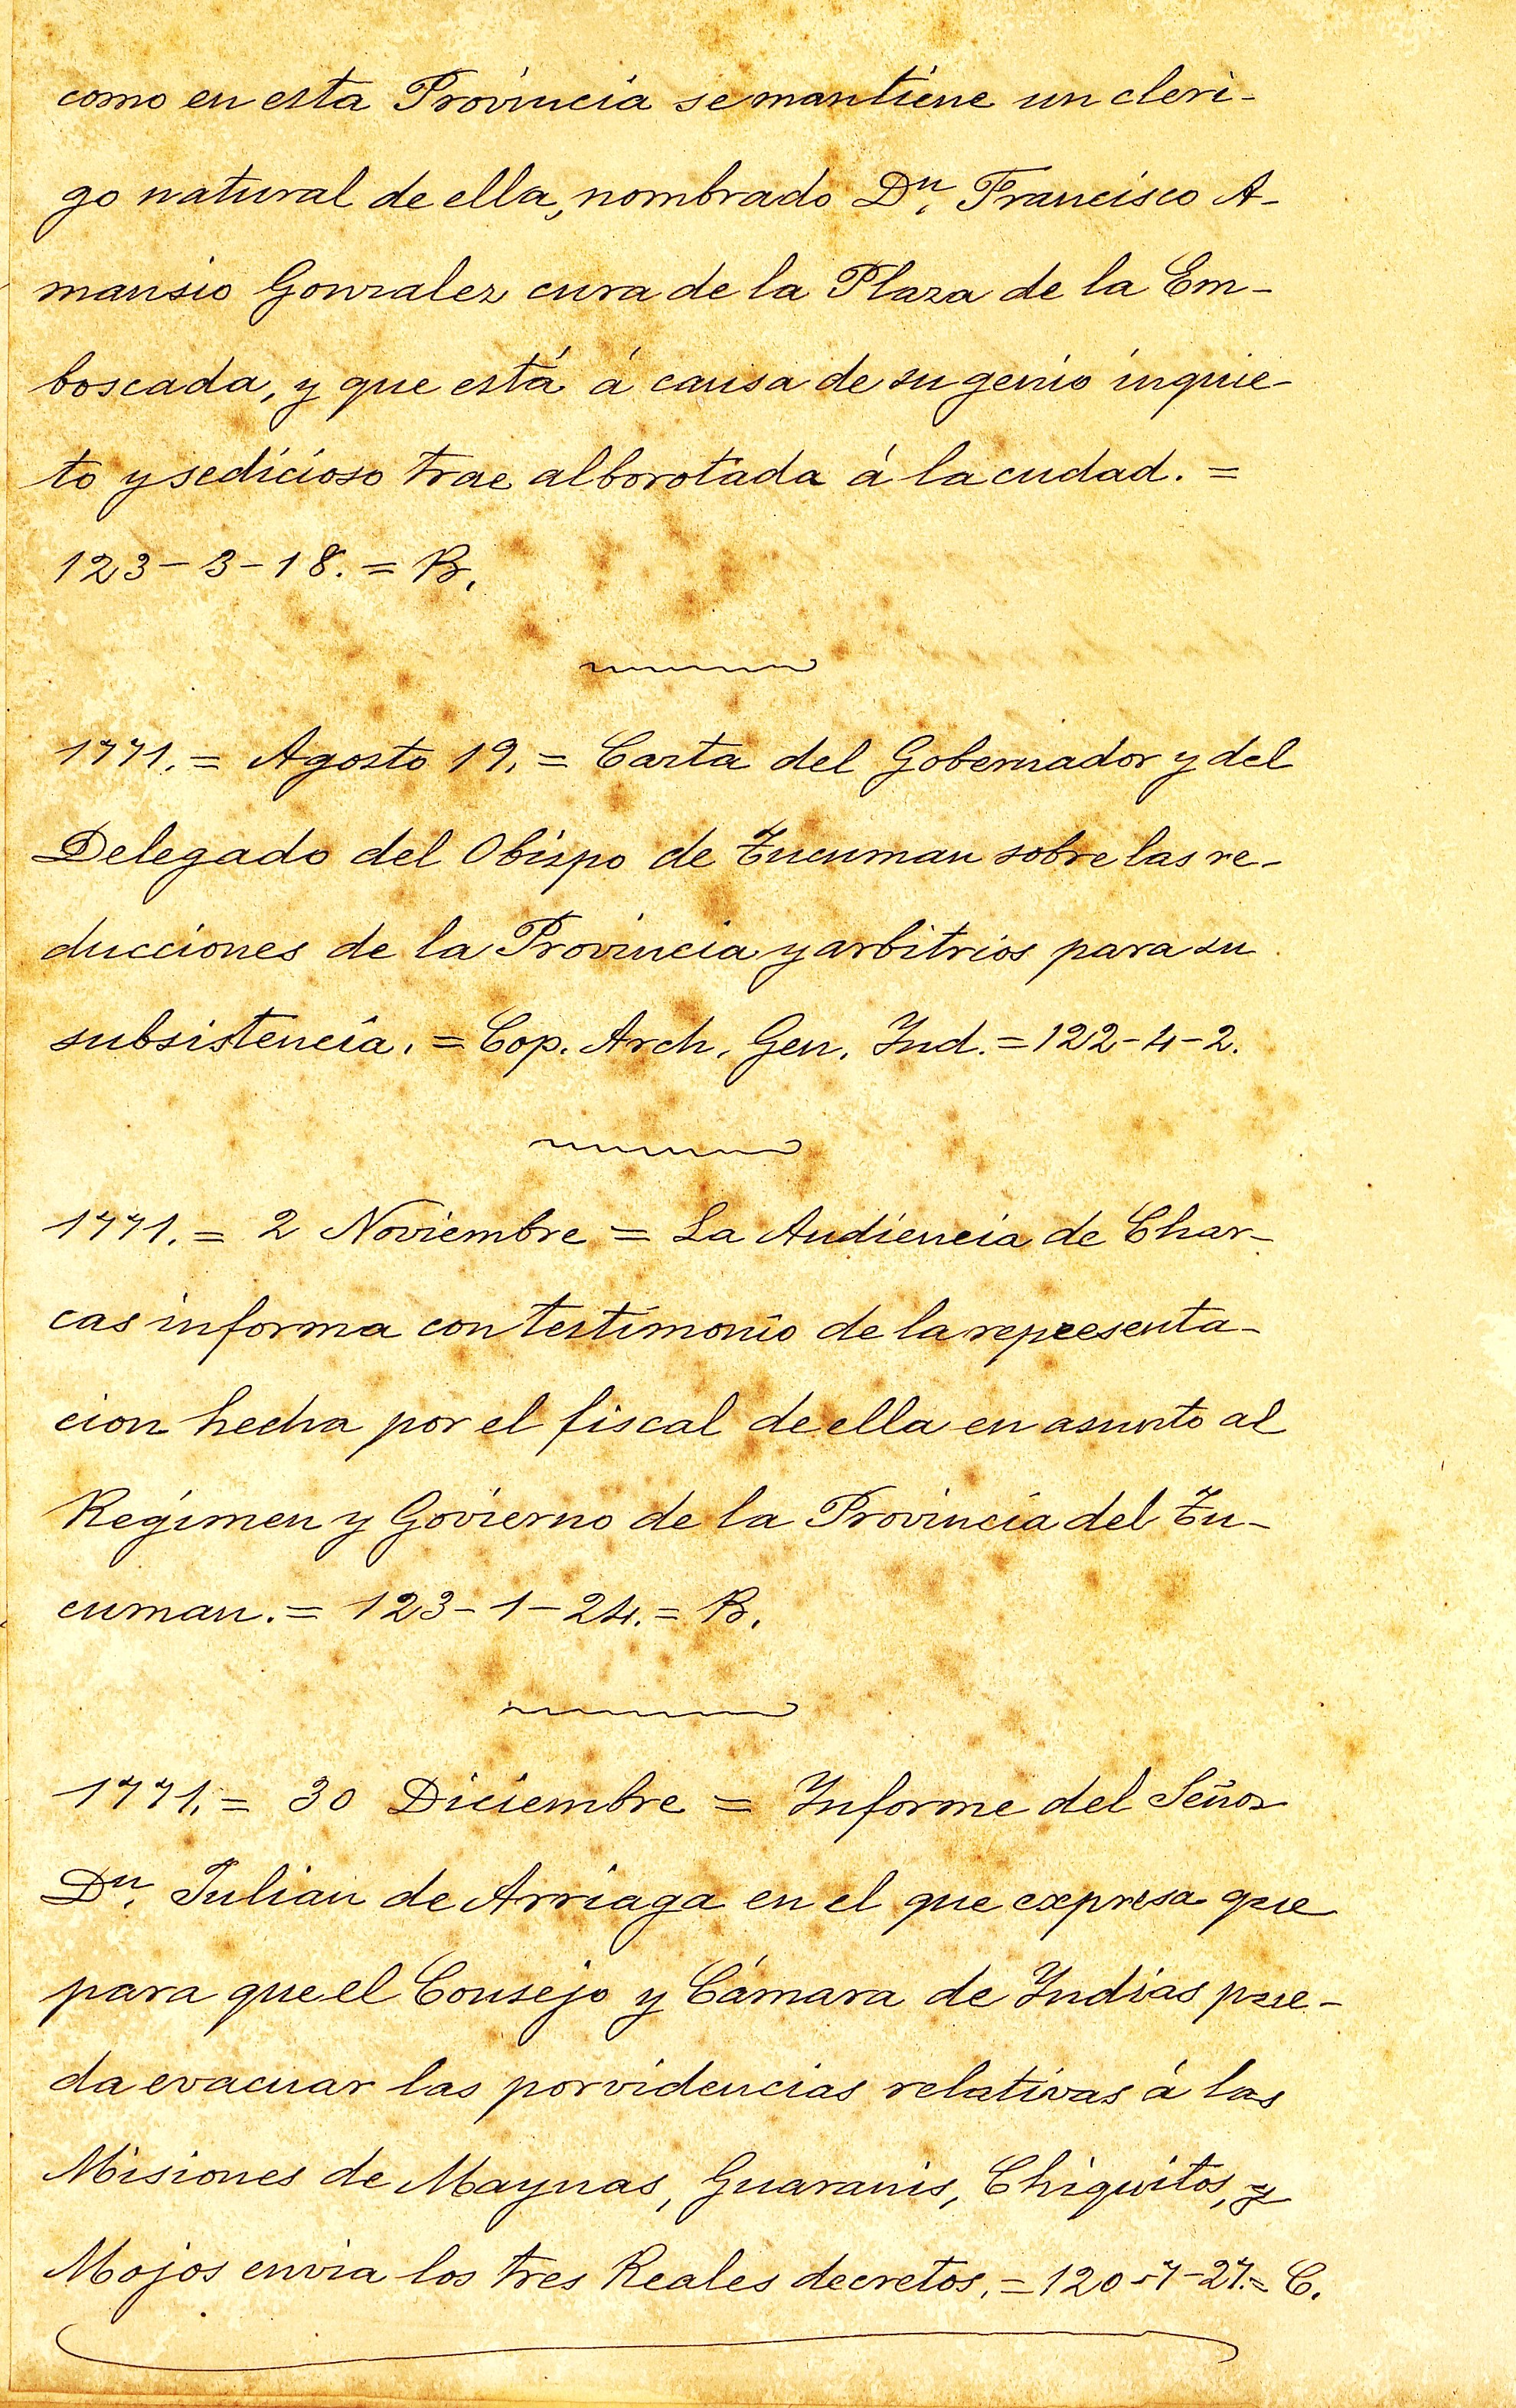 como en esta Provincia se mantiene un cleri-
go natural de ella, nombrado Dn. Francisco A-
mansio Gonzalez cura de la Plaza de la Em-
boscada, y que está á causa de su genio inquie-
to y sedicioso trae alborotada á la cudad. =
123-3-18. = B.
1771. = Agosto 19. = Carta del Gobernador y del
Delegado del Obispo de Tucuman sobre las re-
ducciones de la Provincia y arbitrios para su
subsistencia. = Cop. Arch. Gen. Ind. = 122-4-2.
1771. = 2 Noviembre = La Audiencia de Char-
cas informa con testimonio de la representa-
cion hecha por el fiscal de ella en asunto al
Regimen y Govierno de la Provincia del Tu-
cuman. = 123-1-24. = B.
1771. = 30 Diciembre = Informe del Señor
Dn. Julian de Arriaga en el que expresa que
para que el Consejo y Cámara de Indias pue-
da evacuar las porvidencias relativas á las
Misiones de Maynas, Guaranis, Chiquitos, y
Mojos envia los tres Reales decretos. = 120-7-27. = C.